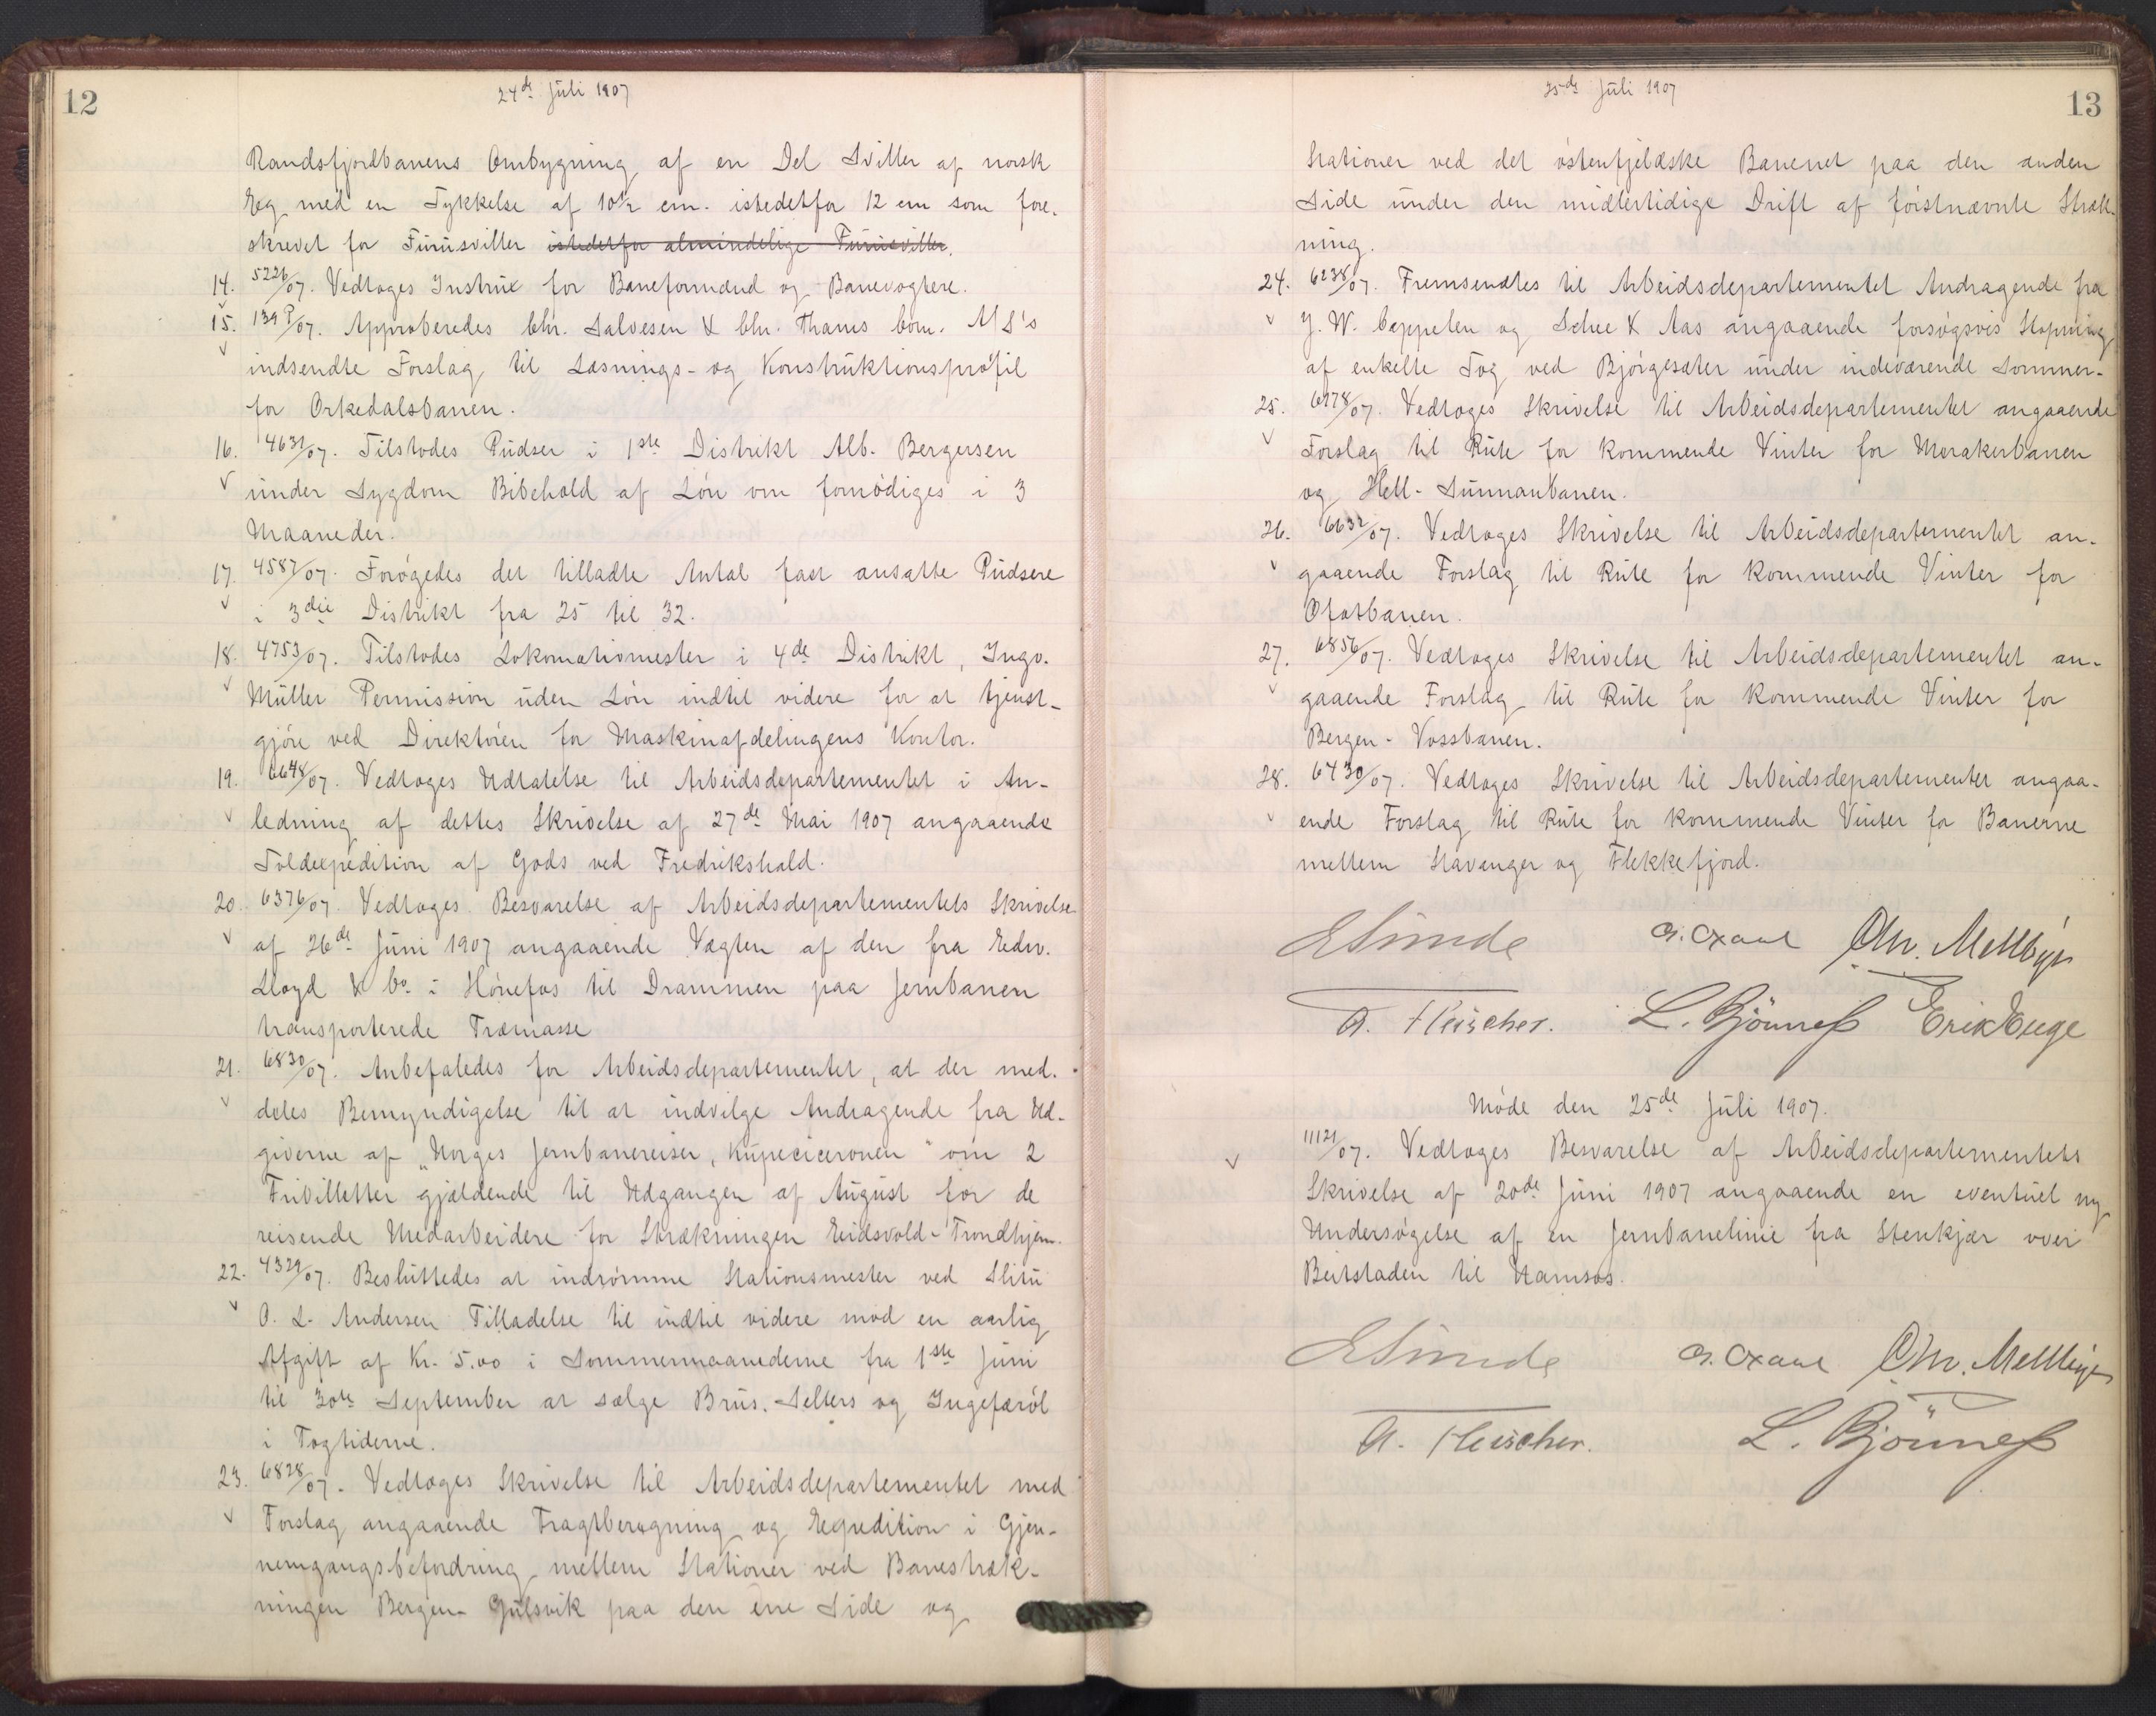 12
24de Juli 1907
Randsfjordbanens Ombygning af en Del Sviller af norsk
Eg med en Tykkelse af 10½ cm. istedetfor 12 cm som fore-
skrevet for Furusviller istedetfor almindelige Furusviller.
14. 5226/07. Vedtoges Instrux for Baneformænd og Banevogtere.
15. 139 P/07. Approberedes Chr. Salvesen & Chr. Thams Com. A/S's
indsendte Forslag til Læsnings- og Konstruktionsprofil
for Orkedalsbanen.
16. 4631/07. Tilstodes Pudser i 1ste Distrikt Alb. Bergersen
under Sygdom Bibehold af Løn om fornødiges i 3
Maaneder.
17. 4587/07. Forøgedes det tilladte Antal fast ansatte Pudsere
i 3die Distrikt fra 25 til 32.
18. 4753/07. Tilstodes Lokomotivmester i 4de Distrikt, Ingv.
Müller Permission uden Løn indtil videre for at tjenst-
gjøre ved Direktøren for Maskinafdelingens Kontor.
19. 6648/07. Vedtoges Udtalelse til Arbeidsdepartementet i An-
ledning af dettes Skrivelse af 27de Mai 1907 angaaende
Toldexpedition af Gods ved Fredrikshald.
20. 6376/07. Vedtoges Besvarelse af Arbeidsdepartementets Skrivelse
af 26de Juni 1907 angaaende Vægten af den fra Edw.
Lloyd & Co. i Hønefos til Drammen paa Jernbanen
transporterede Træmasse
21. 6830/07. Anbefaledes for Arbeidsdepartementet, at der med-
deles Bemyndigelse til at indvilge Andragende fra Ud-
giverne af "Norges Jernbanereiser, Kupeciceronen" om 2
Fribilletter gjældende til Udgangen af August for de
reisende Medarbeidere for Strækningen Eidsvold-Trondhjem.
22. 4329/07. Besluttedes at indrømme Stationsmester ved Slitu
O. L. Andersen Tilladelse til indtil videre mod en aarlig
Afgift af Kr. 5.00 i Sommermaanederne fra 1ste Juni
til 30te September at sælge Brus, Selters og Ingefærøl
i Togtiderne.
23. 6828/07. Vedtoges Skrivelse til Arbeidsdepartementet med
Forslag angaaende Fragtberegning og Expedition i Gjen-
nemgangsbefordring mellem Stationer ved Banestræk-
ningen Bergen-Gulsvik paa den ene Side og
13
25de Juli 1907
Stationer ved det østenfjeldske Banenet paa den anden
Side under den midlertidige Drift af førstnævnte Stræk-
ning.
24. 6238/07. Fremsendtes til Arbeidsdepartementet Andragende fra
J. W. Cappelen og Schee & Aas angaaende forsøgsvis Stopning
af enkelte Tog ved Bjørgesæter under indeværende Sommer.
25. 6178/07. Vedtoges Skrivelse til Arbeidsdepartementet angaaende
Forslag til Rute for kommende Vinter for Merakerbanen
og Hell-Sunnanbanen.
26. 6632/07. Vedtoges Skrivelse til Arbeidsdepartementet an-
gaaende Forslag til Rute for kommende Vinter for
Ofotbanen.
27. 6856/07. Vedtoges Skrivelse til Arbeidsdepartementet an-
gaaende Forslag til Rute for kommende Vinter for
Bergen-Vossbanen.
28. 6430/07. Vedtoges Skrivelse til Arbeidsdepartementet angaa-
ende Forslag til Rute for kommende Vinter for Banerne
mellem Stavanger og Flekkefjord.
ESunde
Chr. Mellbye
A. Fleischer. L. Bjönness
Møde den 25de Juli 1907.
11121/07. Vedtoges Besvarelse af Arbeidsdepartementets
Skrivelse af 20de Juni 1907 angaaende en eventuel ny
Undersøgelse af en Jernbanelinie fra Stenkjær over
Beitstaden til Namsos.
ESunde
Chr. Mellbye
A. Fleischer.
L. Bjönness